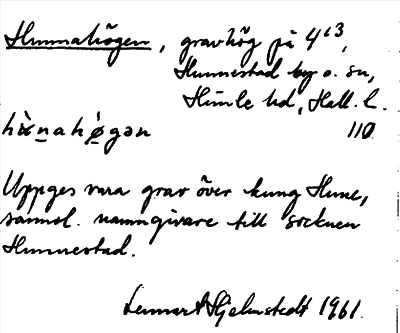 Hunnahögen, gravhög på 4¹³,
Hunnestad by o. sn,
Himle hd, Hall. l.
110
Uppges vara grav över kung Hune,
sannol. namngivare till socknen
Hunnestad.
Lennart Hjelmstedt 1961.